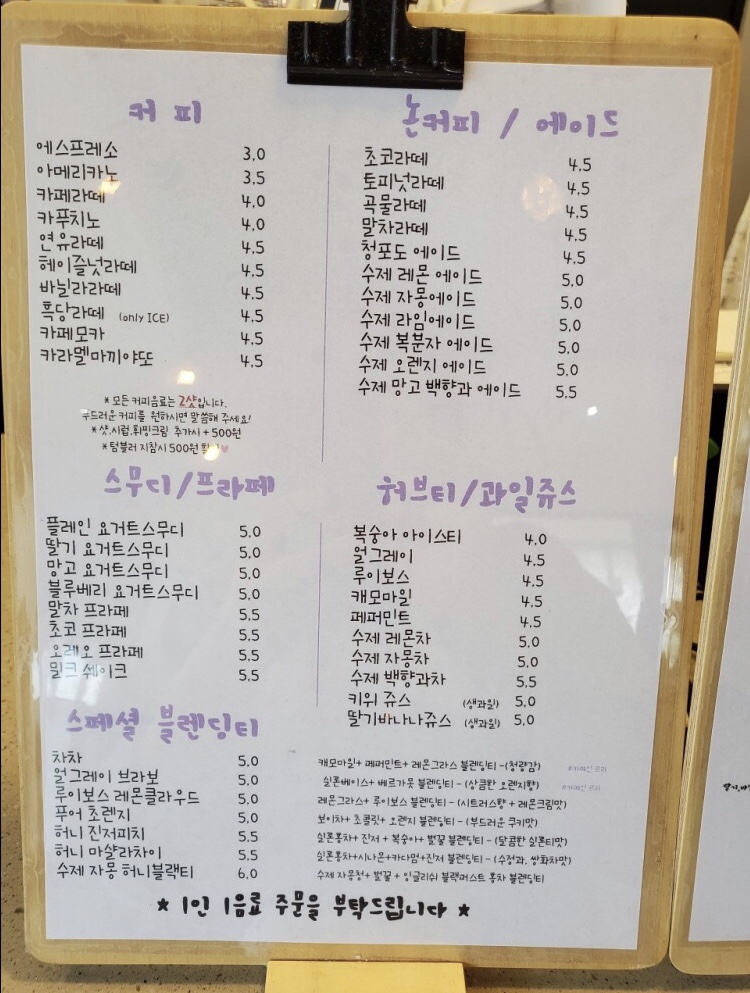 커 피
에스프레소 3.0
아메리카노 3.5
카페라떼 4.0
카푸치노 4.0
연유라떼 4.5
헤이즐넛라떼 4.5
바닐라라떼 4.5
흑당라떼 (only ICE) 4.5
카페모카 4.5
카라멜마끼야또 4.5
* 모든 커피음료는 2샷입니다.
부드러운 커피를 원하시면 말씀해 주세요!
* 샷.시럽.휘핑크림 추가시 + 500원
* 텀블러 지참시 500원
논커피 / 에이드
초코라떼 4.5
토피넛라떼 4.5
곡물라떼 4.5
말차라떼 4.5
청포도 에이드 4.5
수제 레몬 에이드 5.0
수제 자몽에이드 5.0
수제 라임에이드 5.0
수제 복분자 에이드 5.0
수제 오렌지 에이드 5.0
수제 망고 백향과 에이드 5.5
스무디/프라페
플레인 요거트스무디 5.0
딸기 요거트스무디 5.0
망고 요거트스무디 5.0
블루베리 요거트스무디 5.0
말차 프라페 5.5
초코 프라페 5.5
오레오 프라페 5.5
밀크 쉐이크 5.5
허브티/과일쥬스
복숭아 아이스티 4.0
얼그레이 4.5
루이보스 4.5
캐모마일 4.5
페퍼민트 4.5
수제 레몬차 5.0
수제 자몽차 5.0
수제 백향과차 5.5
키위 쥬스 (생과일) 5.0
딸기바나나쥬스 (생과일) 5.0
스페셜 블렌딩티
차차 5.0
얼그레이 브라보 5.0
루이보스 레몬클라우드 5.0
푸어 초렌지 5.0
허니 진저피치 5.5
허니 마샬라차이 5.5
수제 자몽 허니블랙티 6.0
캐모마일+ 페퍼민트+ 레몬그라스 블렌딩티 -(청량감) #카페인 프리
실론베이스+ 베르가못 블렌딩티 - (상큼한 오렌지향) #카페인 프리
레몬그라스+ 루이보스 블렌딩티 - (시트러스향 + 레몬크림맛)
보이차+ 초콜릿+ 오렌지 블렌딩티 - (부드러운 쿠키맛)
실론홍차+ 진저 + 복숭아+ 벌꿀 블렌딩티 - (달콤한 실론티맛)
실론홍차+시나몬+카다멈+진저 블렌딩티 - (수정과, 쌍화차맛)
수제 자몽청+ 벌꿀 + 잉글리쉬 블랙퍼스트 홍차 블렌딩티
★ 1인 1음료 주문을 부탁드립니다 ★